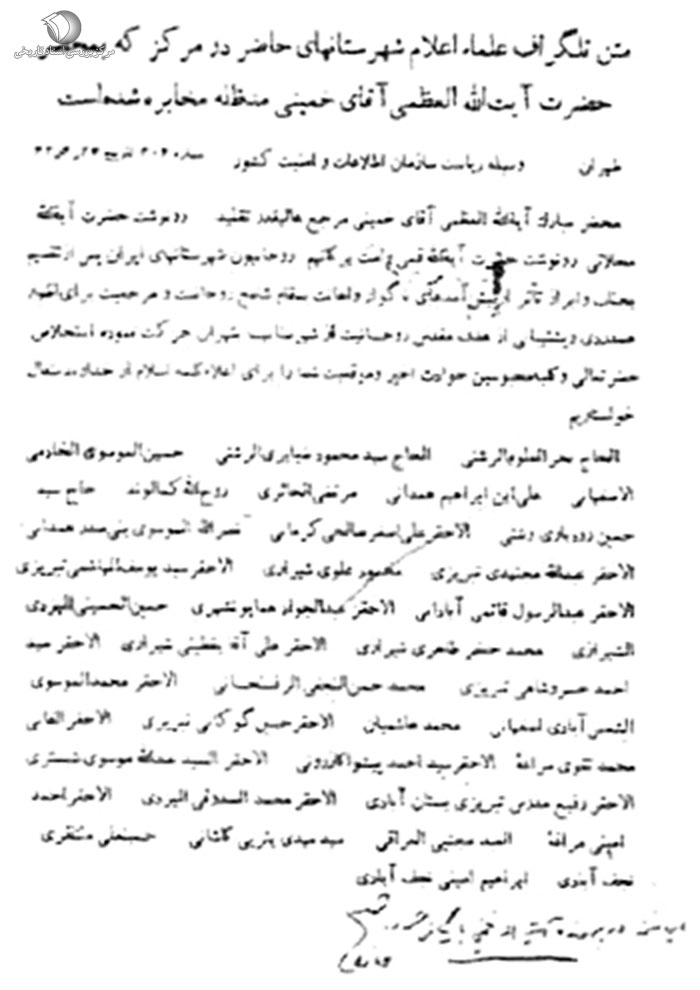 مرکز بررسی اسناد تاریخی
متن تلگراف علماء اعلام شهرستانهای حاضر در مرکز که بمحضر
حضرت آیت‌الله العظمی آقای خمینی مدظله مخابره شده‌است
طهران وسیله ریاست سازمان اطلاعات و امنیت کشور
محضر مبارک آیةالله العظمی آقای خمینی مرجع عالیقدر تقلید رونوشت حضرت آیةالله
محلاتی رونوشت حضرت آیةالله قمی دامت برکاتهم روحانیون شهرستانهای ایران پس از تقدیم
تحیات و ابراز تأثر از پیش‌آمدهای ناگوار و اهانت بمقام شامخ روحانیت و مرجعیت برای اظهار
همدردی و پشتیبانی از هدف مقدس روحانیت طهران حرکت نموده استخلاص
حضرتعالی و کلیه محبوسین حوادث اخیر و موفقیت شما را برای اعلاء کلمه اسلام از خداوند متعال
خواستاریم
الحاج بحرالعلوم الرشتی الحاج سید محمود ضیابری الرشتی حسین الموسوی الخادمی
الاصفهانی علی ابن ابراهیم همدانی مرتضی الحائری روح‌الله کمالوند حاج سید
حسین رودباری رشتی الاحقر علی‌اصغر صالحی کرمانی نصرالله الموسوی بنی‌صدر همدانی
الاحقر عبدالله مجتهدی تبریزی محمود علوی شیرازی الاحقر سید یوسف الهاشمی تبریزی
الاحقر عبدالرسول قائمی آبادانی الاحقر عبدالجواد همایونشهری حسین الحسینی الیزدی
الشیرازی محمد جعفر طاهری شیرازی الاحقر علی آقا شیرازی الاحقر سید
احمد خسروشاهی تبریزی محمد حسن النجفی الرفسنجانی الاحقر محمد الموسوی
الشمس‌آبادی اصفهانی محمد هاشمیان الاحقر حسین تبریزی الاحقر
محمد نقوی مراغه الاحقر سید احمد پیشوا کازرونی الاحقر السید عبدالله موسوی شستری
الاحقر رفیع مدرس تبریزی بستان آبادی الاحقر محمد الصدوقی الیزدی الاحقر احمد
امینی مراغه السید مجتبی العراقی سید مهدی یثربی کاشانی حسینعلی منتظری
نجف آبادی ابراهیم امینی نجف آبادی